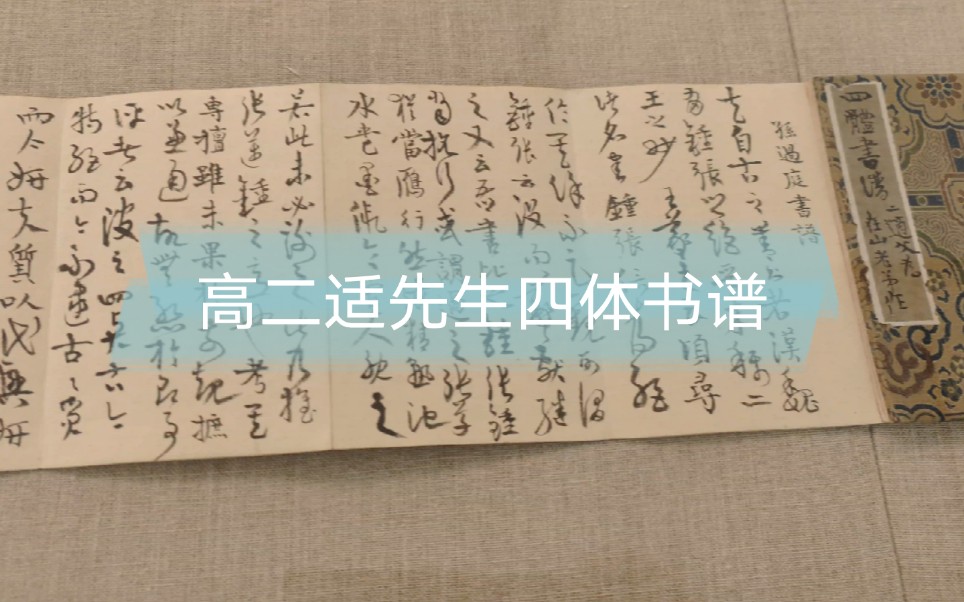 高二适先生四体书谱
四體書譜
孫過庭書譜
夫自古之善書者漢魏
有鍾張之絕末稱二
王之妙王羲之頃尋
諸名書鍾張絕
倫其餘不足觀可謂
鍾張云沒而獻繼
之又云吾書比鍾張鍾
當抗行或謂過之張草
猶當鴈行然精熟池
水盡墨假令人耽之
若此未必謝之此乃推
張邁鍾之意考其
專擅雖未果前規摭
以兼通故無慚於即事
評者云彼之四賢古今
特絕而今不逮古古質
而今妍夫質以代興妍